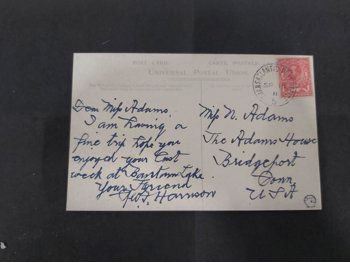 POST CARD. CARTE POSTALE.
UNIVERSAL POSTAL UNION.
Dear Miss Adams,
I am having a
fine trip hope you
enjoyed your last
week at Bantam Lake.
Your Friend
Harrison
Miss N. Adams
The Adams House
Bridgeport
Conn
U.S.A